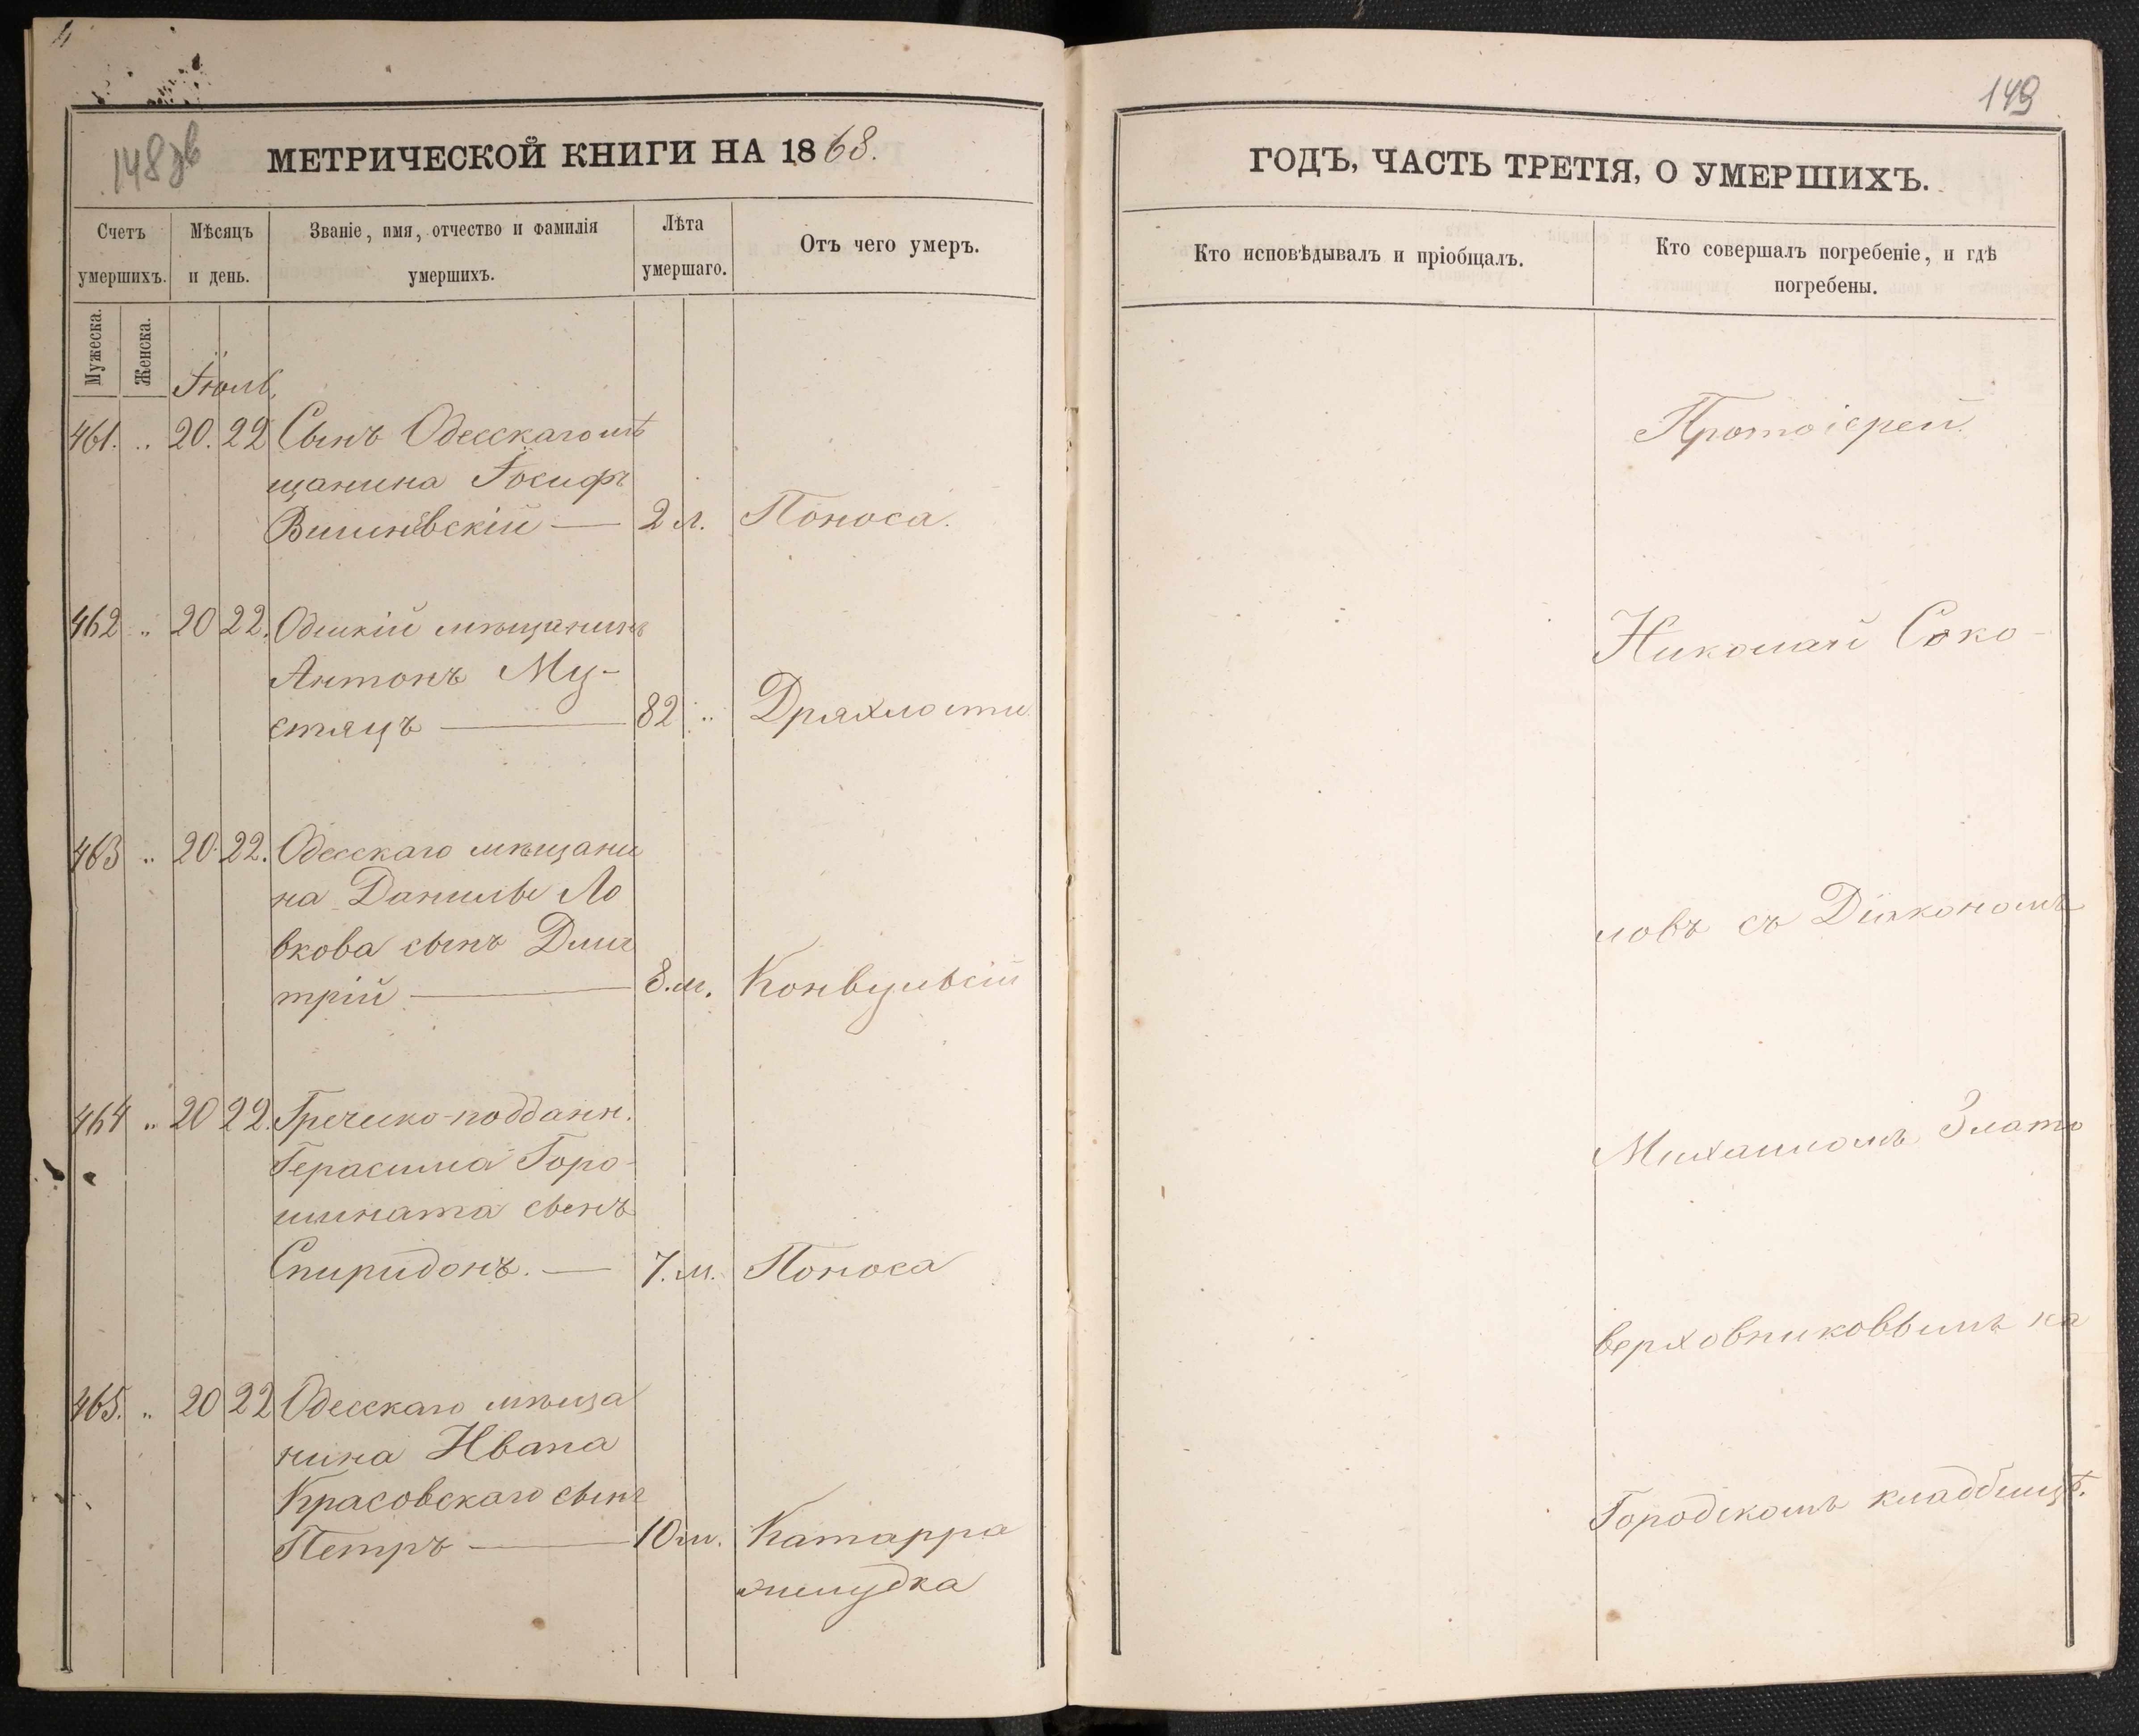 148 зв
МЕТРИЧЕСКОЙ КНИГИ НА 1868.
Счетъ умершихъ.
Мѣсяцъ и день.
Званіе, имя, отчество и фамилія умершихъ.
Лѣта умершаго.
Отъ чего умеръ.
Мужеска.
Женска.
Іюль.
461. „ 20. 22 Сынъ Одесскаго мѣ
щанина Іосифъ
Вишнѣвскій — 2 л. Поноса.
462 „ 20 22. Одесскій мѣщанинъ
Антонъ Му-
стяцъ — 82 „ Дряхлости.
463 „ 20. 22. Одесскаго мѣщани
на Данилы Ло
вкова сынъ Дми
трій — 8. м. Конвульсій
464 „ 20 22. Греческо-поддан.
Герасима Горо-
шината сынъ
Спиридонъ. — 7. м. Поноса
465. „ 20 22 Одесскаго мѣща
нина Ивана
Красовскаго сынъ
Петръ — 10 м. Катарра
желудка
149
ГОДЪ, ЧАСТЬ ТРЕТІЯ, О УМЕРШИХЪ.
Кто исповѣдывалъ и пріобщалъ.
Кто совершалъ погребеніе, и гдѣ
погребены.
Протоіерей
Николай Соко-
ловъ съ Діакономъ
Михаиломъ Злато
верховниковымъ на
Городскомъ кладбищѣ.